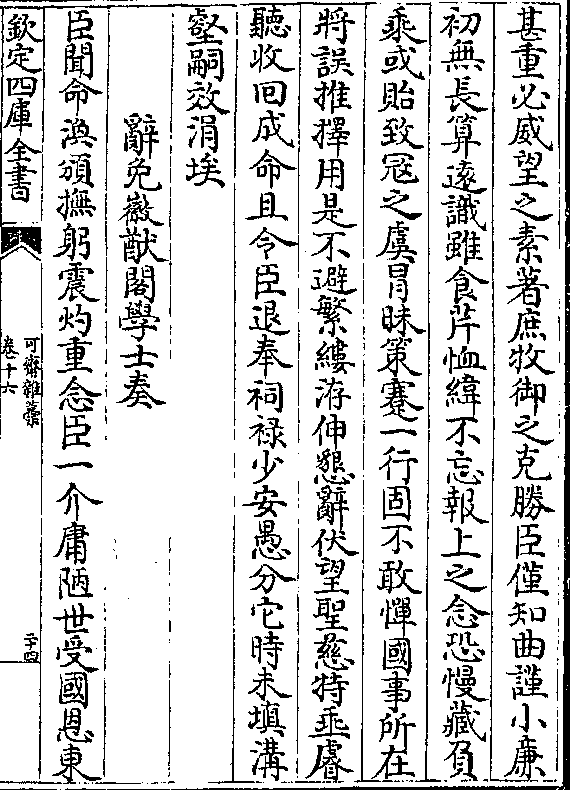 甚重必威望之素著庶牧御之克勝臣僅知曲謹小廉
初無長算逺識雖食芹恤緯不忘報上之念恐慢藏負
乗或貽致冦之虞冐昧策蹇一行固不敢憚國事所在
將誤推擇用是不避繁縷洊伸懇辭伏望聖慈特垂睿
聽收回成命且令臣退奉祠禄少安愚分它時未填溝
壑嗣效涓埃
辭免徽猷閣學士奏
臣聞命渙頒撫躬震灼重念臣一介庸陋世受國恩東
欽定四庫全書
可齋雜藁
卷十六
二十四